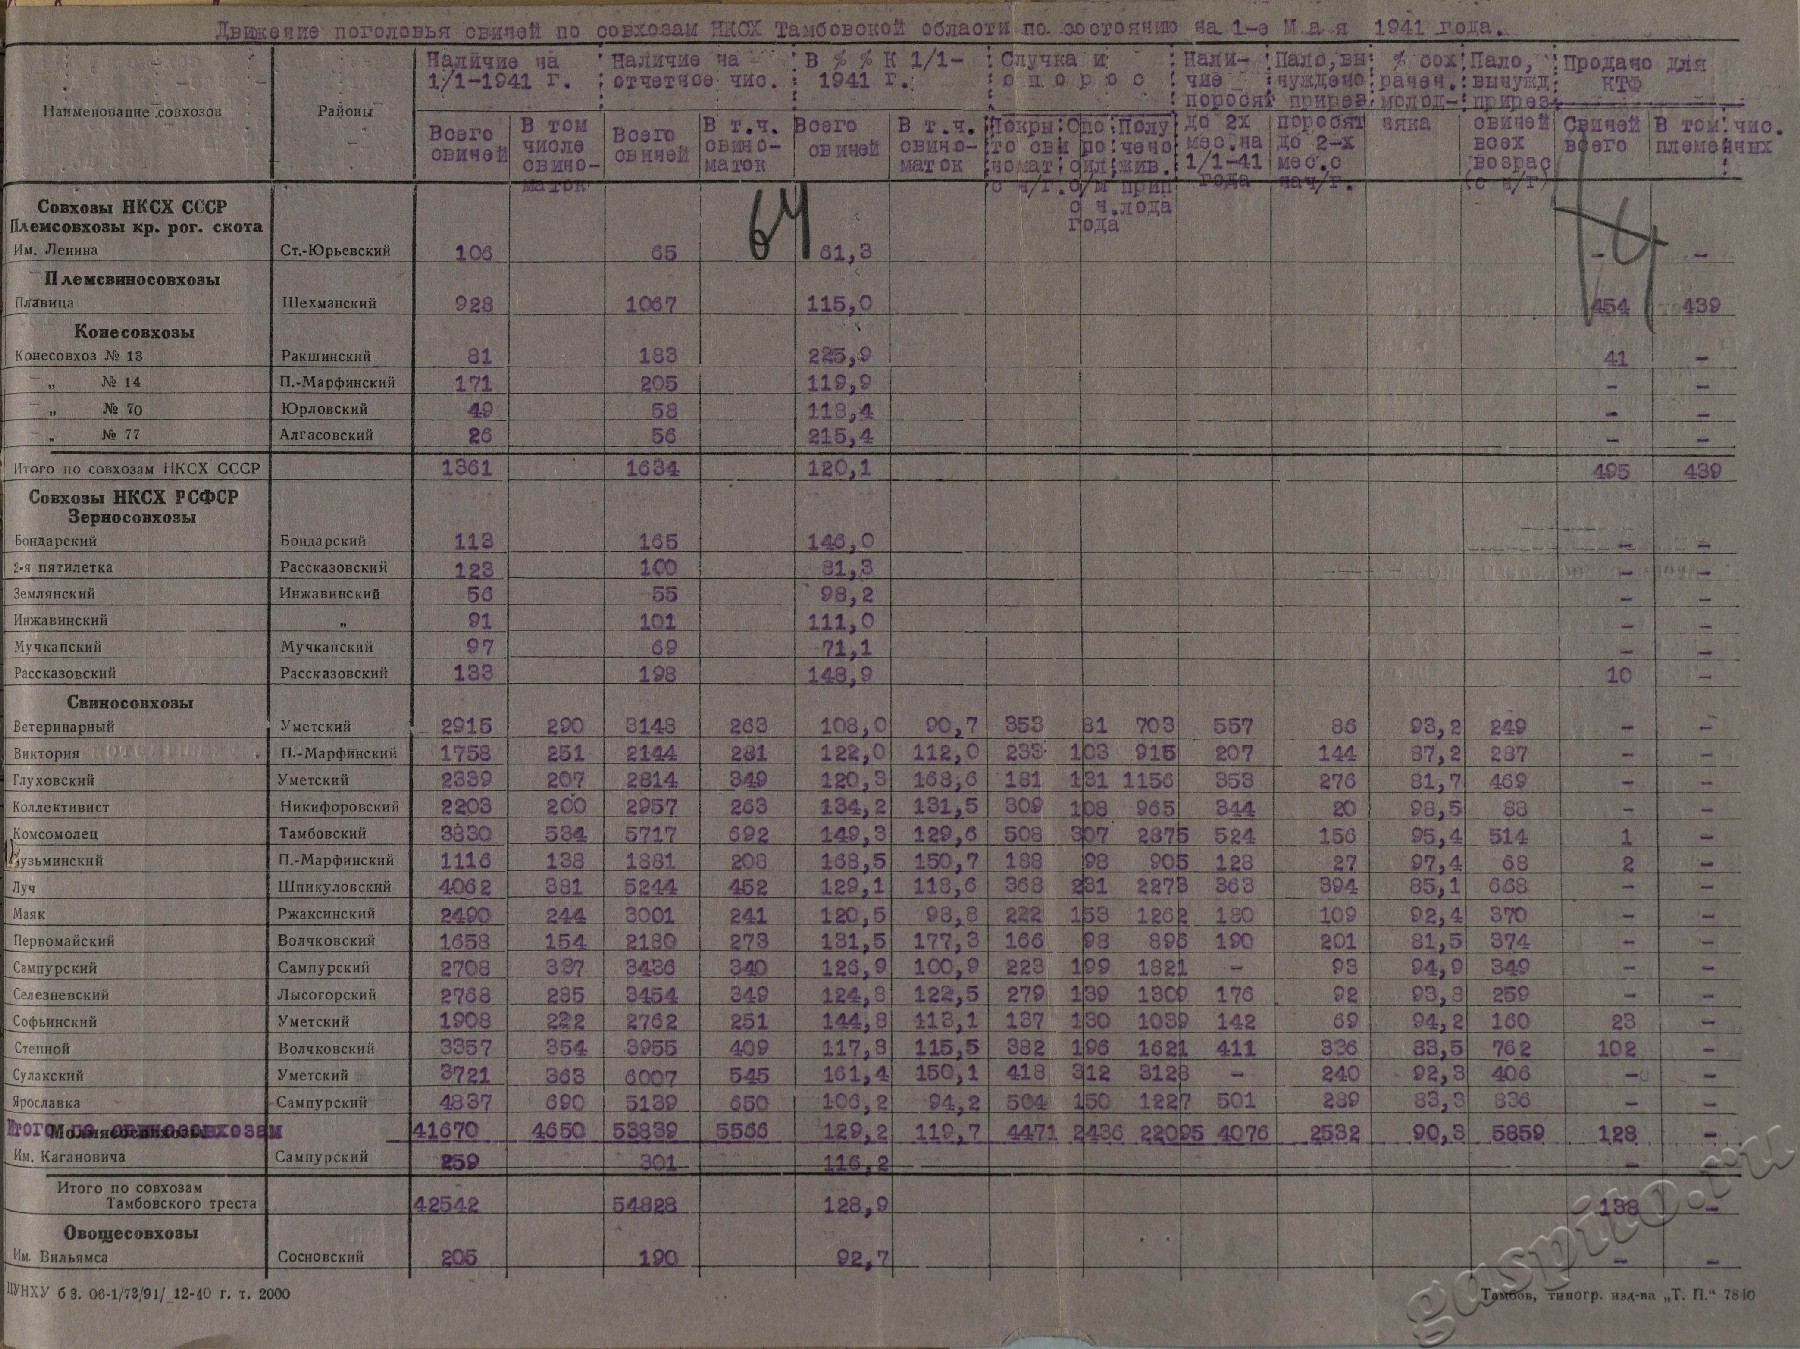 Движение поголовья свиней по совхозам НКСХ Тамбовской области по состоянию на 1-е Мая 1941 года.
Наименование совхозов
Районы
Наличие на 1/1-1941 г.
Наличие на отчетное чис.
В % % К 1/1-1941 г.
Случка и опорос
Нали-чие поросят до 2х мес. на 1/1-41 года
Пало, вынуждено прирез поросят до 2-х мес. с нач/г.
% сохрачен. молод-няка
Пало, вынужд прирез свиней всех возрас (с н/г)
Продано для КТФ
Всего свиней
В том числе свино-маток
Всего свиней
В т.ч. свино-маток
Всего свиней
В т.ч. свино-маток
Покрыто свиномат с н/г.
Опоросил. с/м с н. года
Получено жив. приплода
Свиней всего
В том чис. племенных
64
Совхозы НКСХ СССР
Племсовхозы кр. рог. скота
Им. Ленина Ст.-Юрьевский 106 65 61,3 - -
Племсвиносовхозы
Плавица Шехманский 928 1067 115,0 454 439
Конесовхозы
Конесовхоз № 13 Ракшинский 81 183 225,9 41 -
„ № 14 П.-Марфинский 171 205 119,9 - -
„ № 70 Юрловский 49 58 118,4 - -
„ № 77 Алгасовский 26 56 215,4 - -
Итого по совхозам НКСХ СССР 1361 1634 120,1 495 439
Совхозы НКСХ РСФСР
Зерносовхозы
Бондарский Бондарский 113 165 146,0 - -
2-я пятилетка Рассказовский 123 100 81,3 - -
Землянский Инжавинский 56 55 98,2 - -
Инжавинский „ 91 101 111,0 - -
Мучкапский Мучкапский 97 69 71,1 - -
Рассказовский Рассказовский 133 198 148,9 10 -
Свиносовхозы
Ветеринарный Уметский 2915 290 3148 263 108,0 90,7 353 81 703 557 86 93,2 249 - -
Виктория П.-Марфинский 1758 251 2144 281 122,0 112,0 233 103 915 207 144 87,2 287 - -
Глуховский Уметский 2339 207 2814 349 120,3 168,6 181 131 1156 353 276 81,7 469 - -
Коллективист Никифоровский 2203 200 2957 263 134,2 131,5 309 108 965 344 20 98,5 88 - -
Комсомолец Тамбовский 3830 534 5717 692 149,3 129,6 508 307 2875 524 156 95,4 514 1 -
Кузьминский П.-Марфинский 1116 138 1881 208 168,5 150,7 188 98 905 128 27 97,4 68 2 -
Луч Шпикуловский 4062 381 5244 452 129,1 118,6 368 231 2273 363 394 85,1 668 - -
Маяк Ржаксинский 2490 244 3001 241 120,5 98,8 222 153 1262 180 109 92,4 370 - -
Первомайский Волчковский 1658 154 2180 273 131,5 177,3 166 98 896 190 201 81,5 374 - -
Сампурский Сампурский 2708 337 3436 340 126,9 100,9 223 199 1821 - 93 94,9 349 - -
Селезневский Лысогорский 2768 285 3454 349 124,8 122,5 279 139 1309 176 92 93,8 259 - -
Софьинский Уметский 1908 222 2762 251 144,8 113,1 137 130 1039 142 69 94,2 160 23 -
Степной Волчковский 3357 354 3955 409 117,8 115,5 382 196 1621 411 336 83,5 762 102 -
Сулакский Уметский 3721 363 6007 545 161,4 150,1 418 312 3128 - 240 92,3 406 - -
Ярославка Сампурский 4837 690 5139 650 106,2 94,2 504 150 1227 501 289 83,3 836 - -
Итого по свиносовхозам 41670 4650 53839 5566 129,2 119,7 4471 2436 22095 4076 2532 90,3 5859 128 -
Им. Кагановича Сампурский 259 301 116,2 - -
Итого по совхозам
Тамбовского треста 42542 54828 128,9 138 -
Овощесовхозы
Им. Вильямса Сосновский 205 190 92,7 - -
ЦУНХУ б З. 06-1/73/91/_12-40 г. т. 2000
Тамбов, типогр. изд-ва „Т. П.“ 7840
gaspito.ru